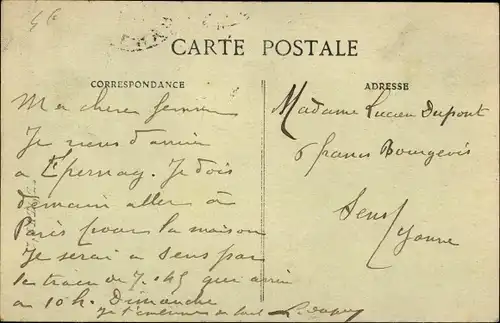 CARTE POSTALE
CORRESPONDANCE
Ma chere femme
Je viens d'arriver
a Epernay. Je dois
demain aller à
Paris pour la maison
Je serai a Sens par
le train de 7.45 qui arrive
a 10h. Dimanche
L. Dupont
ADRESSE
Madame Lucien Dupont
6 francs Bourgeois
Sens
Yonne